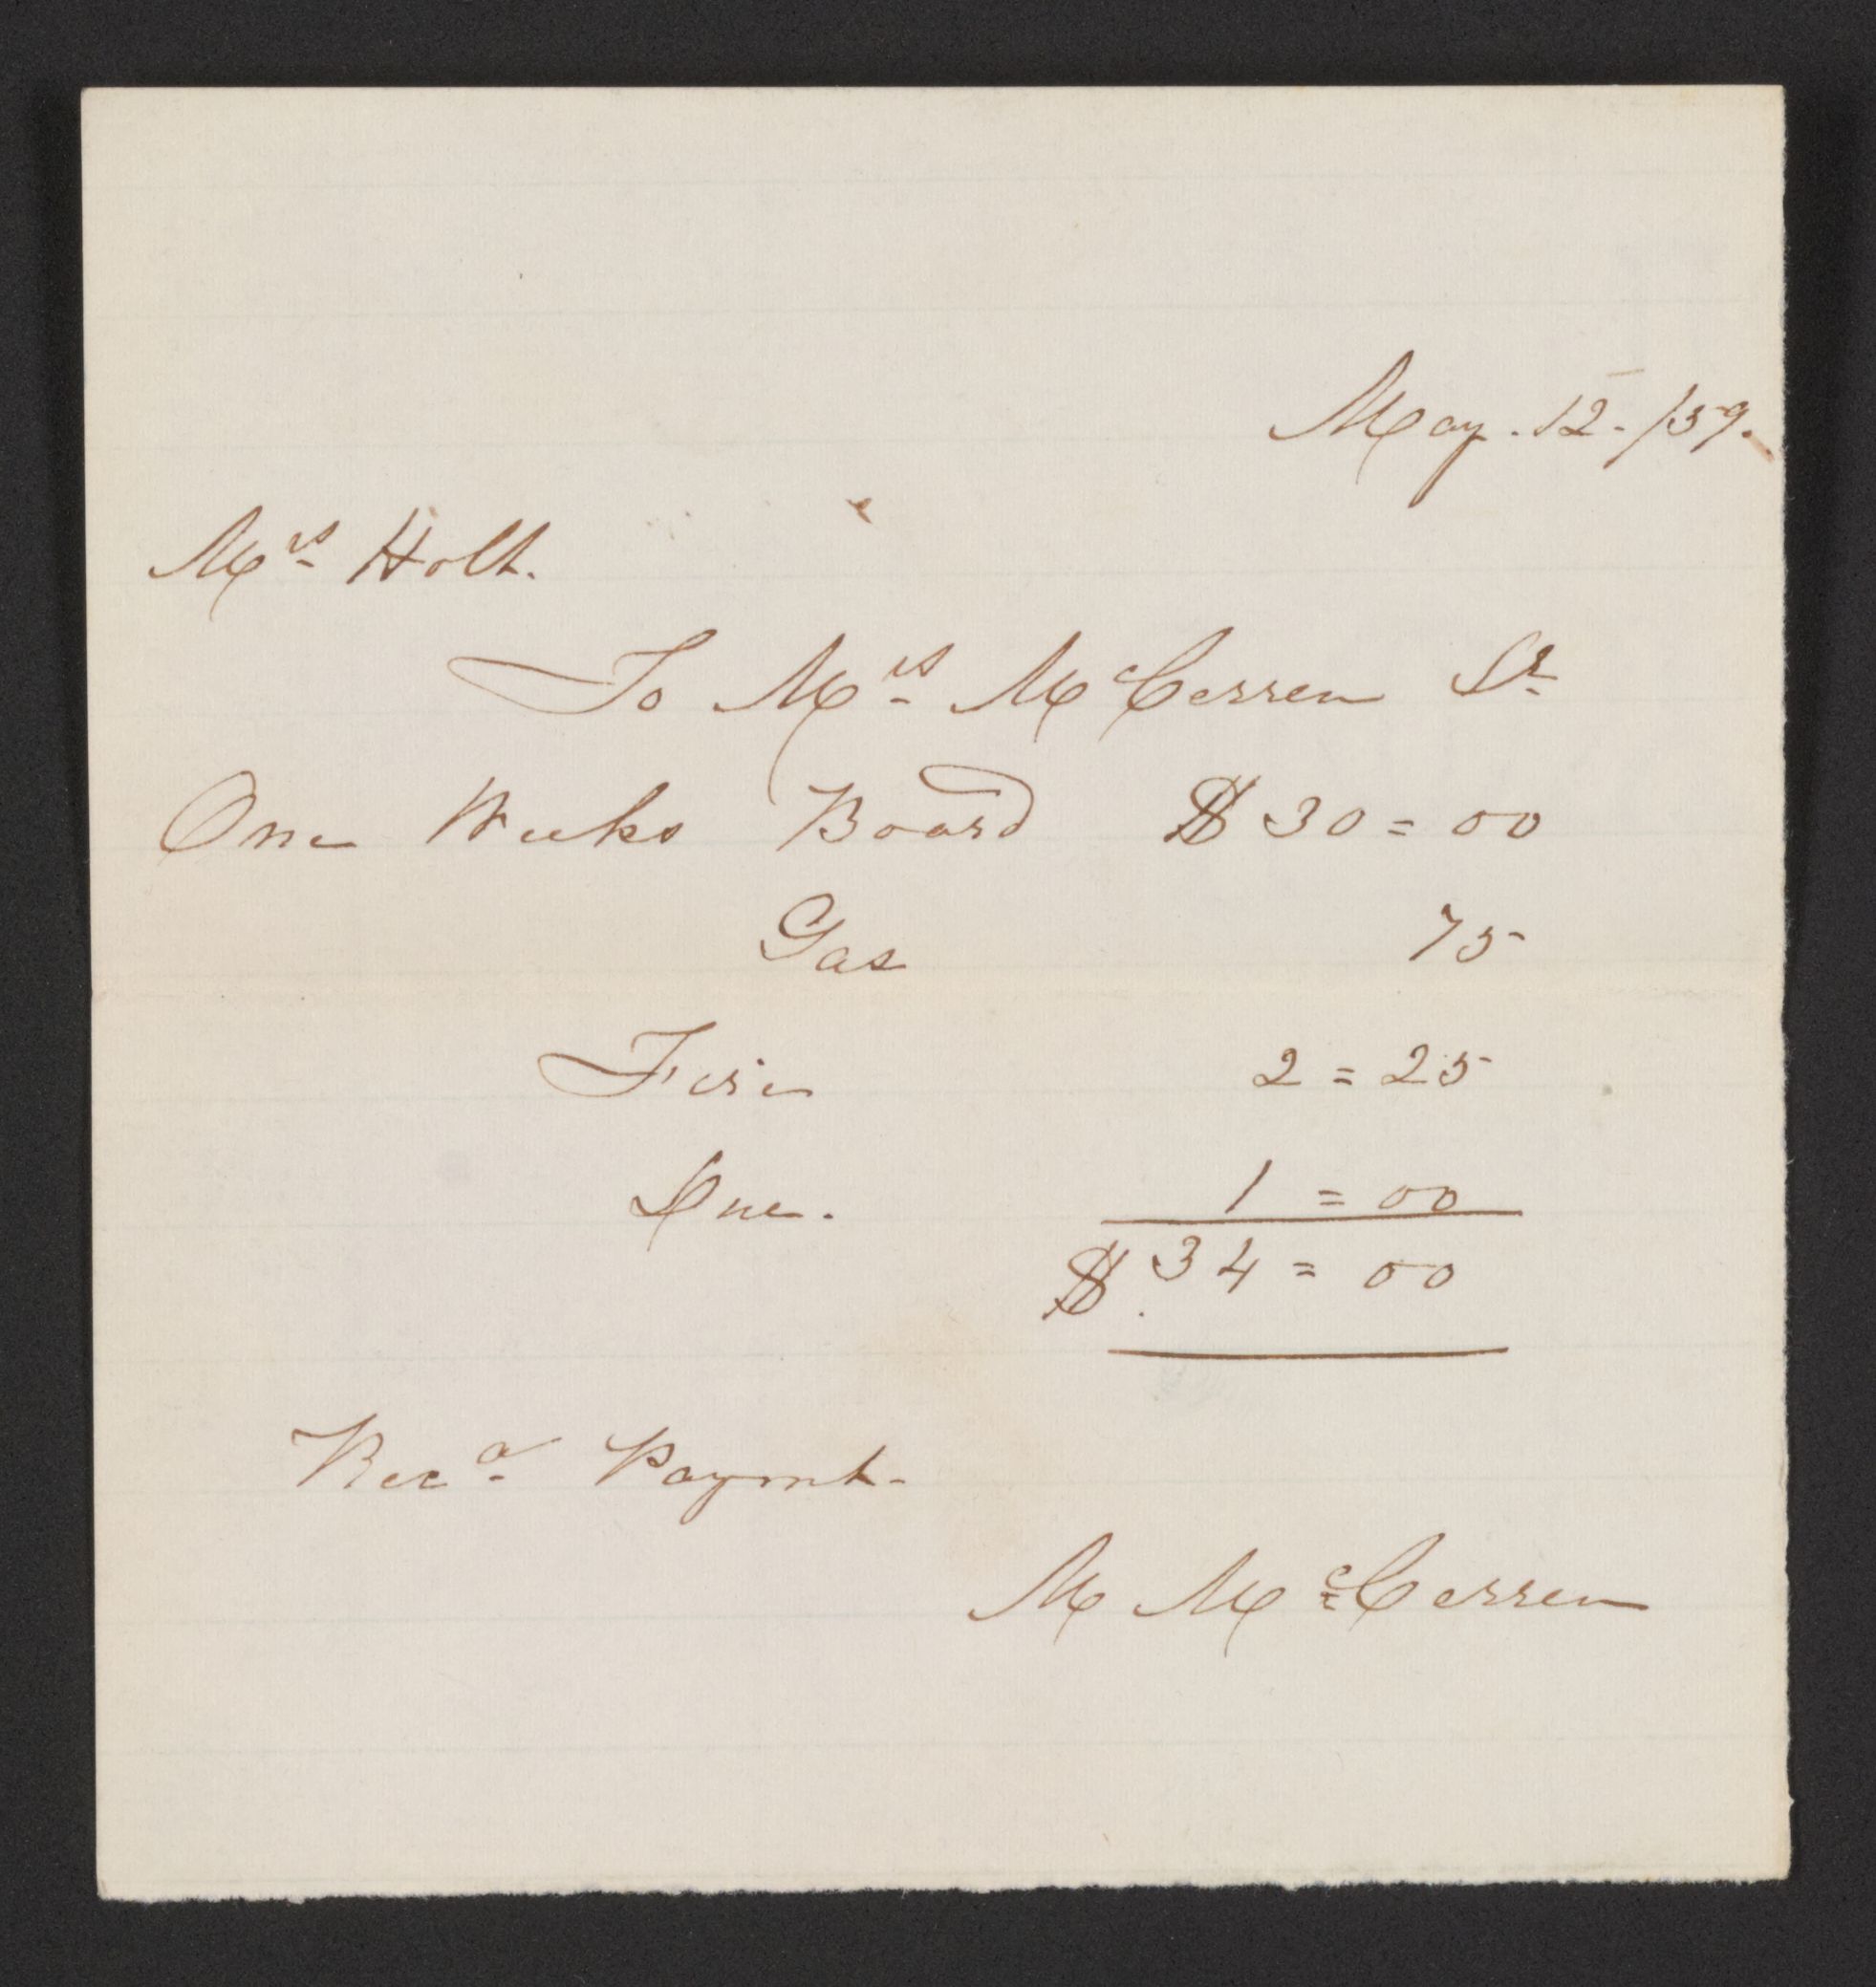 May. 12. /59.
Mrs Holt.
To Mrs McCerren Dr
One Weeks Board $30=00
Gas 75
Fire 2=25
Due. 1=00
$.34=00
Recd Paymt.
M McCerren